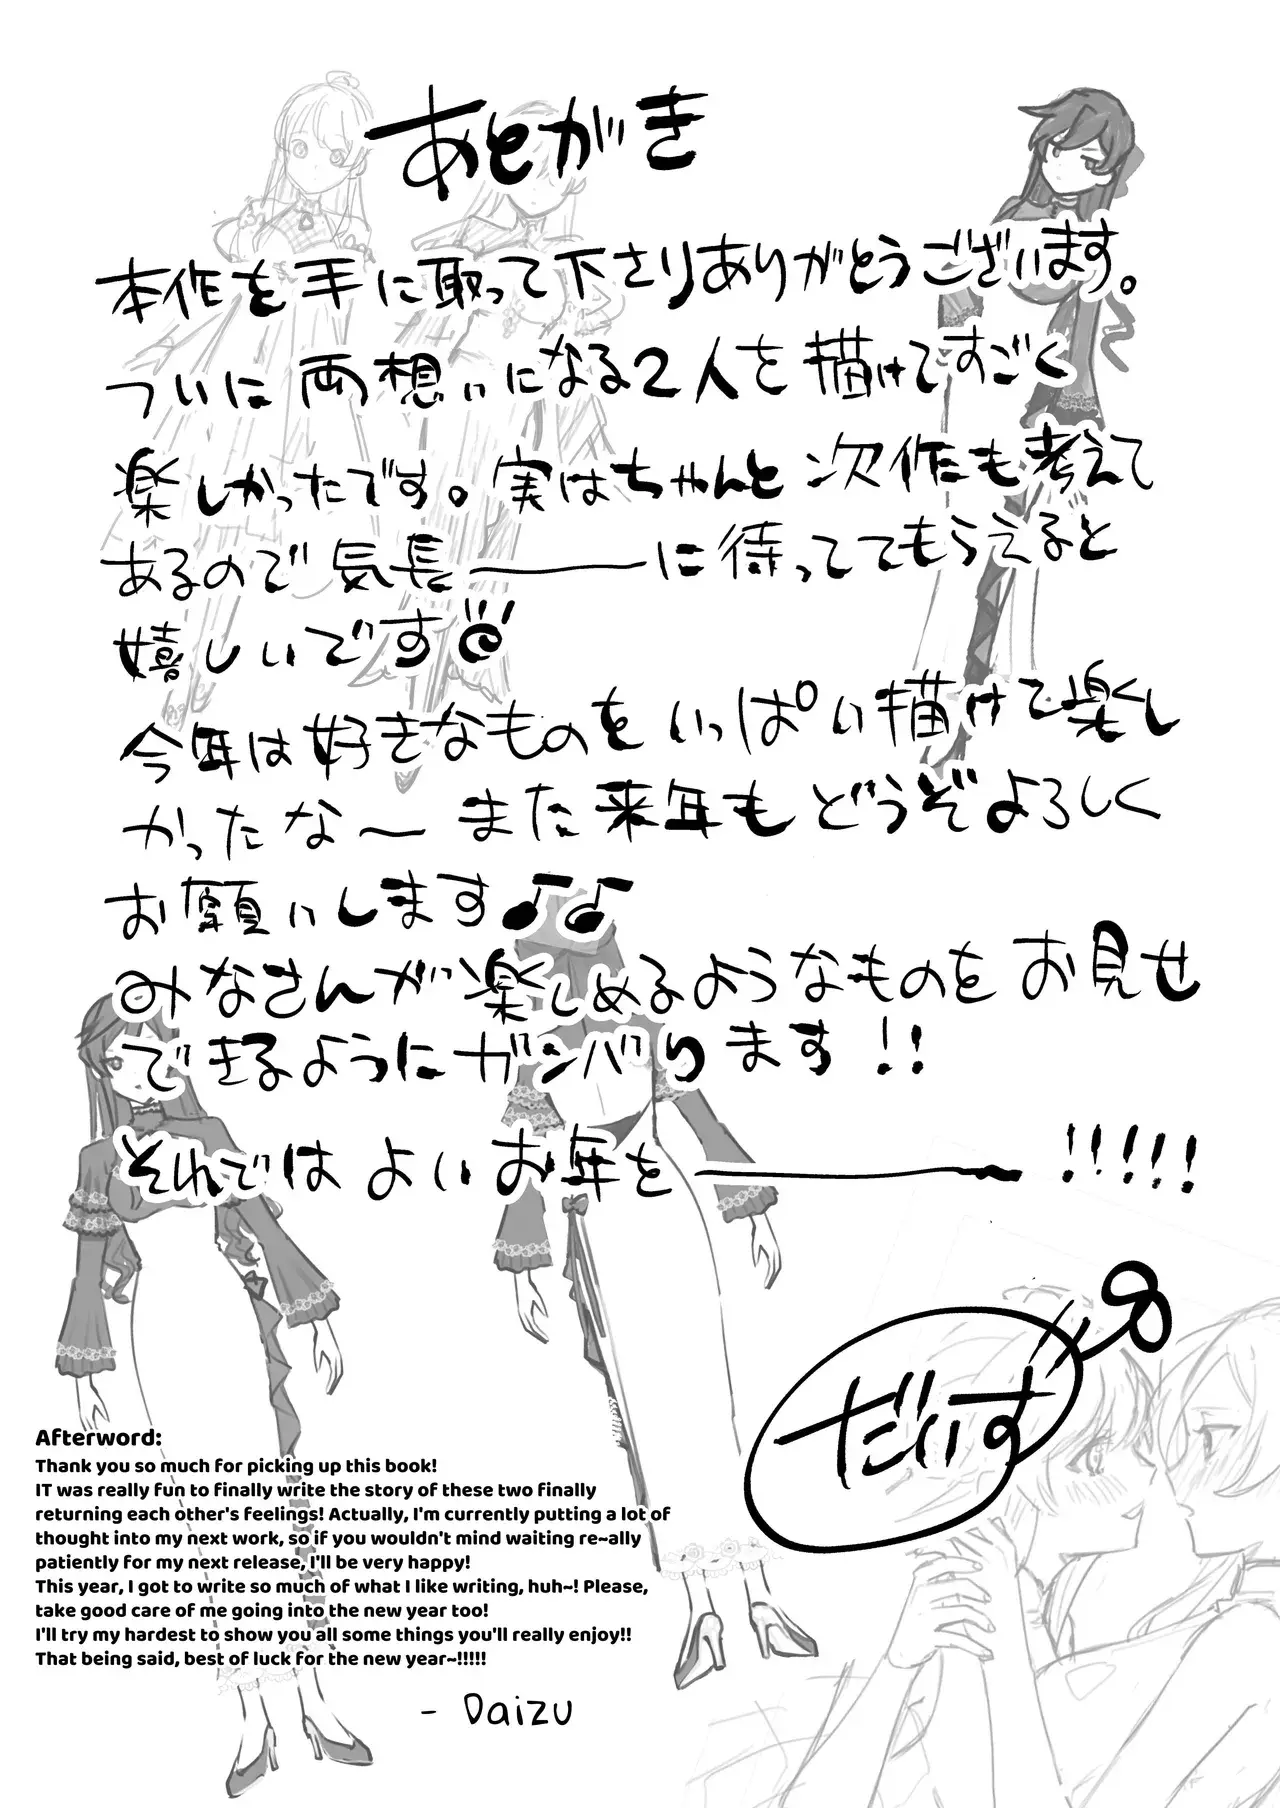 あとがき
本作を手に取って下さりありがとうございます。
ついに両想いになる2人を描けてすごく
楽しかったです。実はちゃんと次作も考えて
あるので気長――――に待っててもらえると
嬉しいです
今年は好きなものをいっぱい描けて楽し
かったな〜また来年もどうぞよろしく
お願いします♪♪
みなさんが楽しめるようなものをお見せ
できるようにガンバります!!
それではよいお年を――――!!!!!
だいず
Afterword:
Thank you so much for picking up this book!
IT was really fun to finally write the story of these two finally
returning each other's feelings! Actually, I'm currently putting a lot of
thought into my next work, so if you wouldn't mind waiting re~ally
patiently for my next release, I'll be very happy!
This year, I got to write so much of what I like writing, huh~! Please,
take good care of me going into the new year too!
I'll try my hardest to show you all some things you'll really enjoy!!
That being said, best of luck for the new year~!!!!!
- Daizu